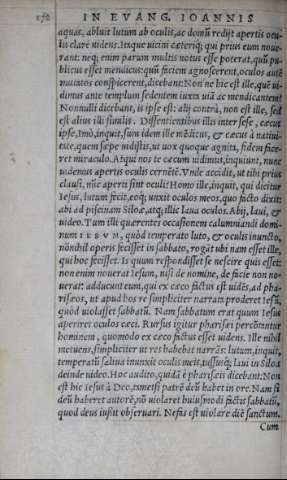 IN EVANG. IOANNIS
aquas, abluit lutum ab oculis, ac domū redijt apertis ocu-
lis clare uidens. Itaque uicini cæteriq; qui prius eum noue-
rant: neq; enim parum multis notus esse poterat, quū pu-
blicus esset mendicus: quū faciem agnoscerent, oculos autē
mutatos conspicerent, dicebant: Non ne hic est ille, quē ui-
dimus ante templum sedentem iuxta uiā ac mendicantem?
Nonnulli dicebant, is ipse est: alij contrà, non est ille, sed
est alius illi similis. Dissentientibus illis inter sese, cæcus
ipse, Imò, inquit, sum idem ille mēdicus, & cæcus à natiui-
tate, quem sæpe uidistis, ut uox quoque agniti, fidem face-
ret miraculo. Atqui nos te cæcum uidimus, inquiunt, nunc
uidemus apertis oculis cernētē. Vnde accidit, ut tibi prius
clausi, nūc aperti sint oculi? Homo ille, inquit, qui dicitur
Iesus, lutum fecit, eoq; unxit oculos meos, quo facto dixit:
abi ad piscinam Siloæ, atq; illic laua oculos. Abij, laui, &
uideo. Tum illi querentes occasionem calumniandi domi-
num IESVM, quòd temperato luto, & oculis inuncto,
nōnihil operis fecisset in sabbato, rogāt ubi nam esset ille,
qui hoc fecisset. Is quum respondisset se nescire quis esset:
non enim nouerat Iesum, nisi de nomine, de facie non no-
uerat: adducunt eum, qui ex cæco factus est uidēs, ad pha-
risæos, ut apud hos re simpliciter narrata proderet Iesū,
quòd uiolasset sabbatū. Nam sabbatum erat quum Iesus
aperiret oculos cæci. Rursus igitur pharisæi percōtantur
hominem, quomodo ex cæco factus esset uidens. Ille nihil
metuens, simpliciter ut res habebat narrās: lutum, inquit,
temperatū saliua inunxit oculis meis, iussusq; laui in Siloa
deinde uideo. Hoc audito, quidā è pharisæis dicebant: Non
est hic Iesus à Deo, tametsi patrē deū habet in ore. Nam si
deū haberet autorē, nō uiolaret huiusmodi factis sabbatū,
quod deus iussit obseruari. Nefas est uiolare diē sanctum.
Cum